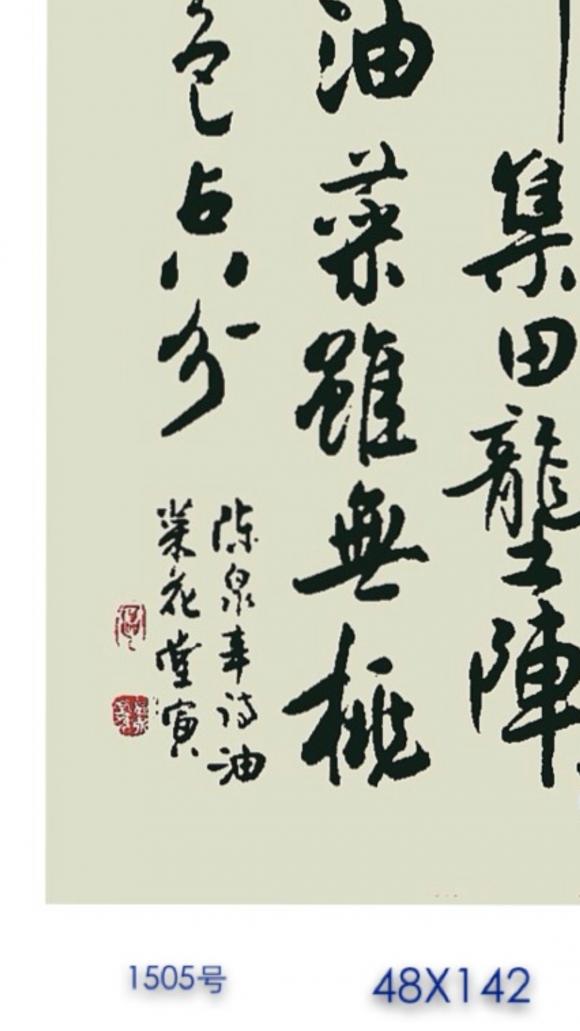 集田壟陣
油菜雖無桃
色占八分
陈泉诗油
菜花堂寅
1505号
48X142